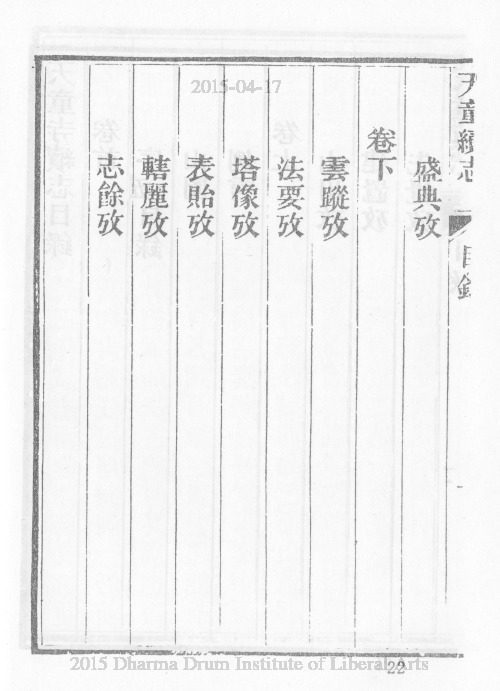 天童續志
目錄
盛典攷
卷下
雲蹤攷
法要攷
塔像攷
表貽攷
轄麗攷
志餘攷
2015-04-17
22
2015 Dharma Drum Institute of Liberal Arts